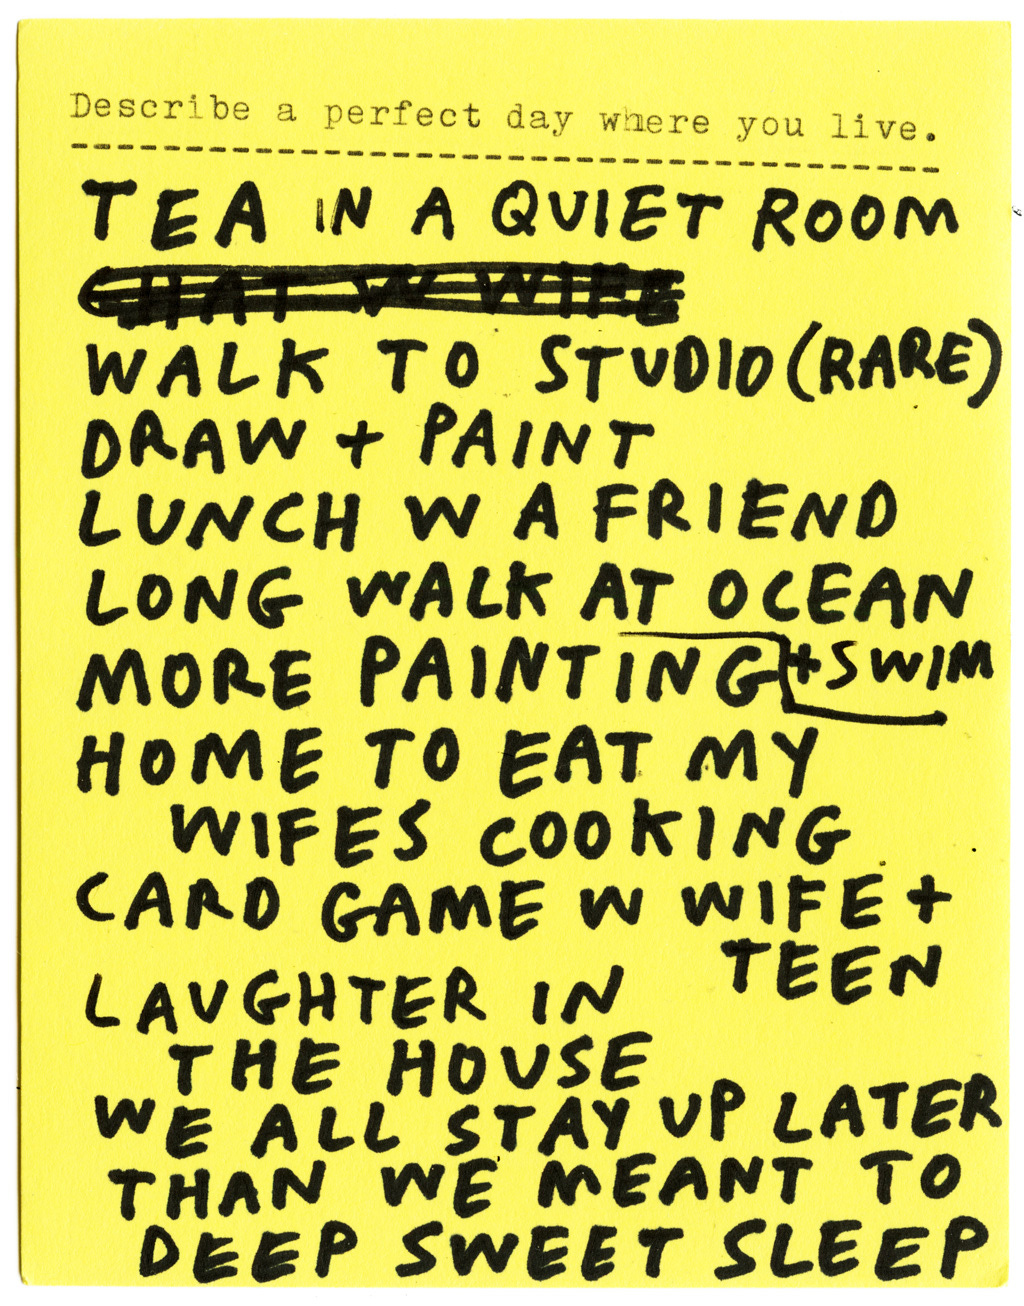 Describe a perfect day where you live.
TEA IN A QUIET ROOM
CHAT W WIFE
WALK TO STUDIO (RARE)
DRAW + PAINT
LUNCH W A FRIEND
LONG WALK AT OCEAN
MORE PAINTING + SWIM
HOME TO EAT MY
WIFES COOKING
CARD GAME W WIFE +
TEEN
LAUGHTER IN
THE HOUSE
WE ALL STAY UP LATER
THAN WE MEANT TO
DEEP SWEET SLEEP